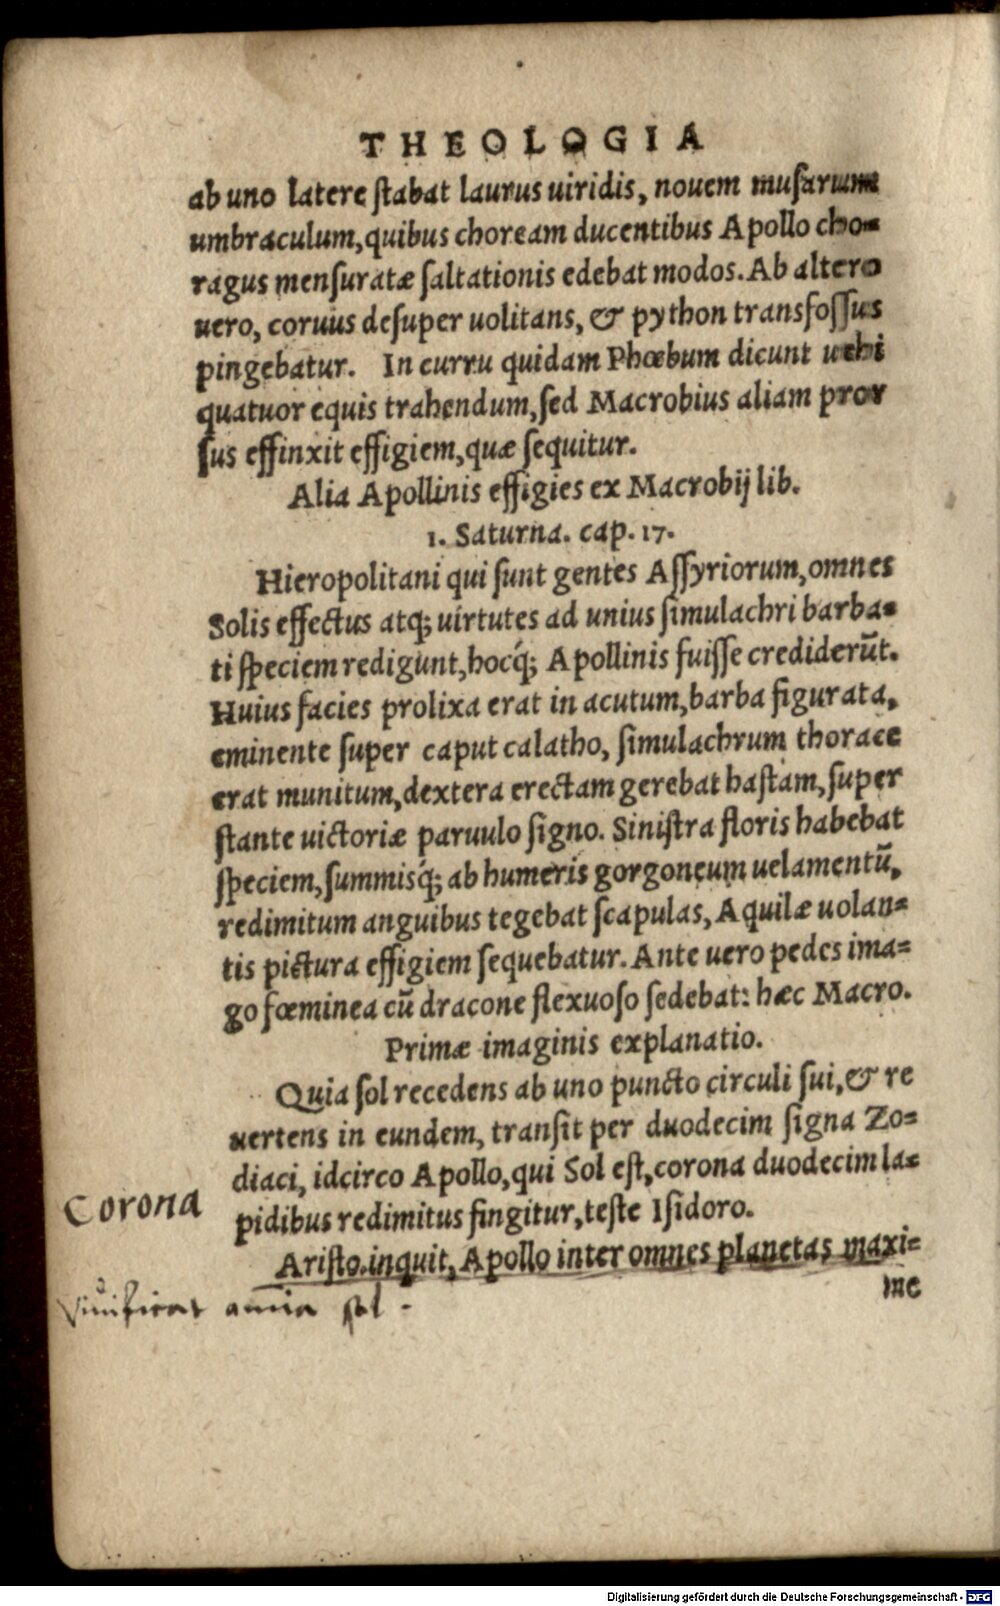 THEOLOGIA
ab uno latere ſtabat laurus uiridis, nouem muſarum
umbraculum, quibus choream ducentibus Apollo cho-
ragus menſuratæ ſaltationis edebat modos. Ab altero
uero, coruus deſuper uolitans, & python transfoſſus
pingebatur. In curru quidam Phœbum dicunt uehi
quatuor equis trahendum, ſed Macrobius aliam pror
ſus effinxit effigiem, quæ ſequitur.
Alia Apollinis effigies ex Macrobij lib.
1. Saturna. cap. 17.
Hieropolitani qui ſunt gentes Aſſyriorum, omnes
Solis effectus atq; uirtutes ad unius ſimulachri barba-
ti ſpeciem redigunt, hocq́; Apollinis fuiſſe crediderūt.
Huius facies prolixa erat in acutum, barba figurata,
eminente ſuper caput calatho, ſimulachrum thorace
erat munitum, dextera erectam gerebat haſtam, ſuper
ſtante uictoriæ paruulo ſigno. Siniſtra floris habebat
ſpeciem, ſummisq́; ab humeris gorgoneum uelamentū,
redimitum anguibus tegebat ſcapulas, Aquilæ uolan=
tis pictura effigiem ſequebatur. Ante uero pedes ima=
go fœminea cū dracone flexuoſo ſedebat: hæc Macro.
Primæ imaginis explanatio.
Quia ſol recedens ab uno puncto circuli ſui, & re
uertens in eundem, tranſit per duodecim ſigna Zo=
diaci, idcirco Apollo, qui Sol eſt, corona duodecim la=
Corona
pidibus redimitus fingitur, teſte Iſidoro.
Ariſto. inquit, Apollo inter omnes planetas maxi=
me
Viuificat omnia sol.
Digitalisierung gefördert durch die Deutsche Forschungsgemeinschaft - DFG